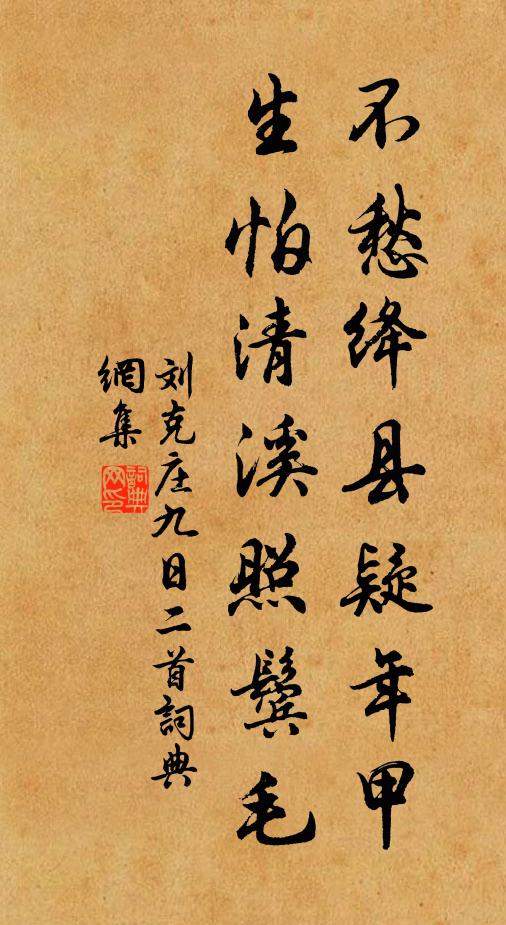 不愁绛县疑年甲
生怕清溪照鬓毛
刘克庄九日二首詞典
網集
詞典
网印